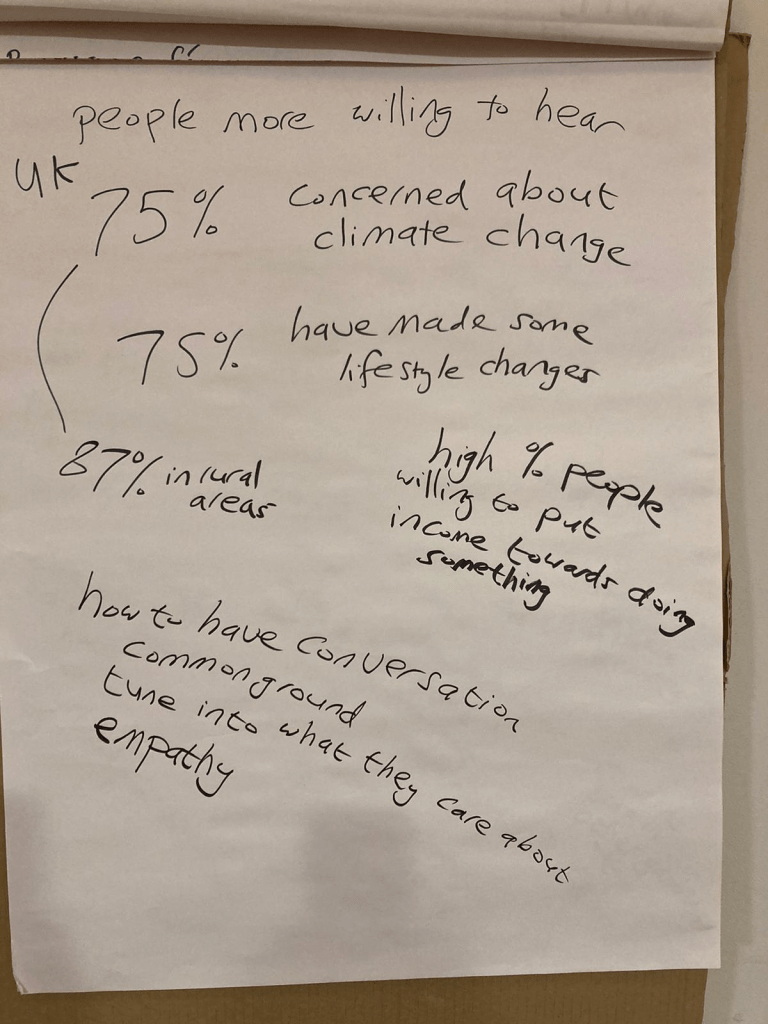 people more willing to hear
UK
75% concerned about
climate change
75% have made some
lifestyle changes
87% in rural
areas
high % people
willing to put
income towards doing
something
how to have conversation
common ground
tune into what they care about
empathy